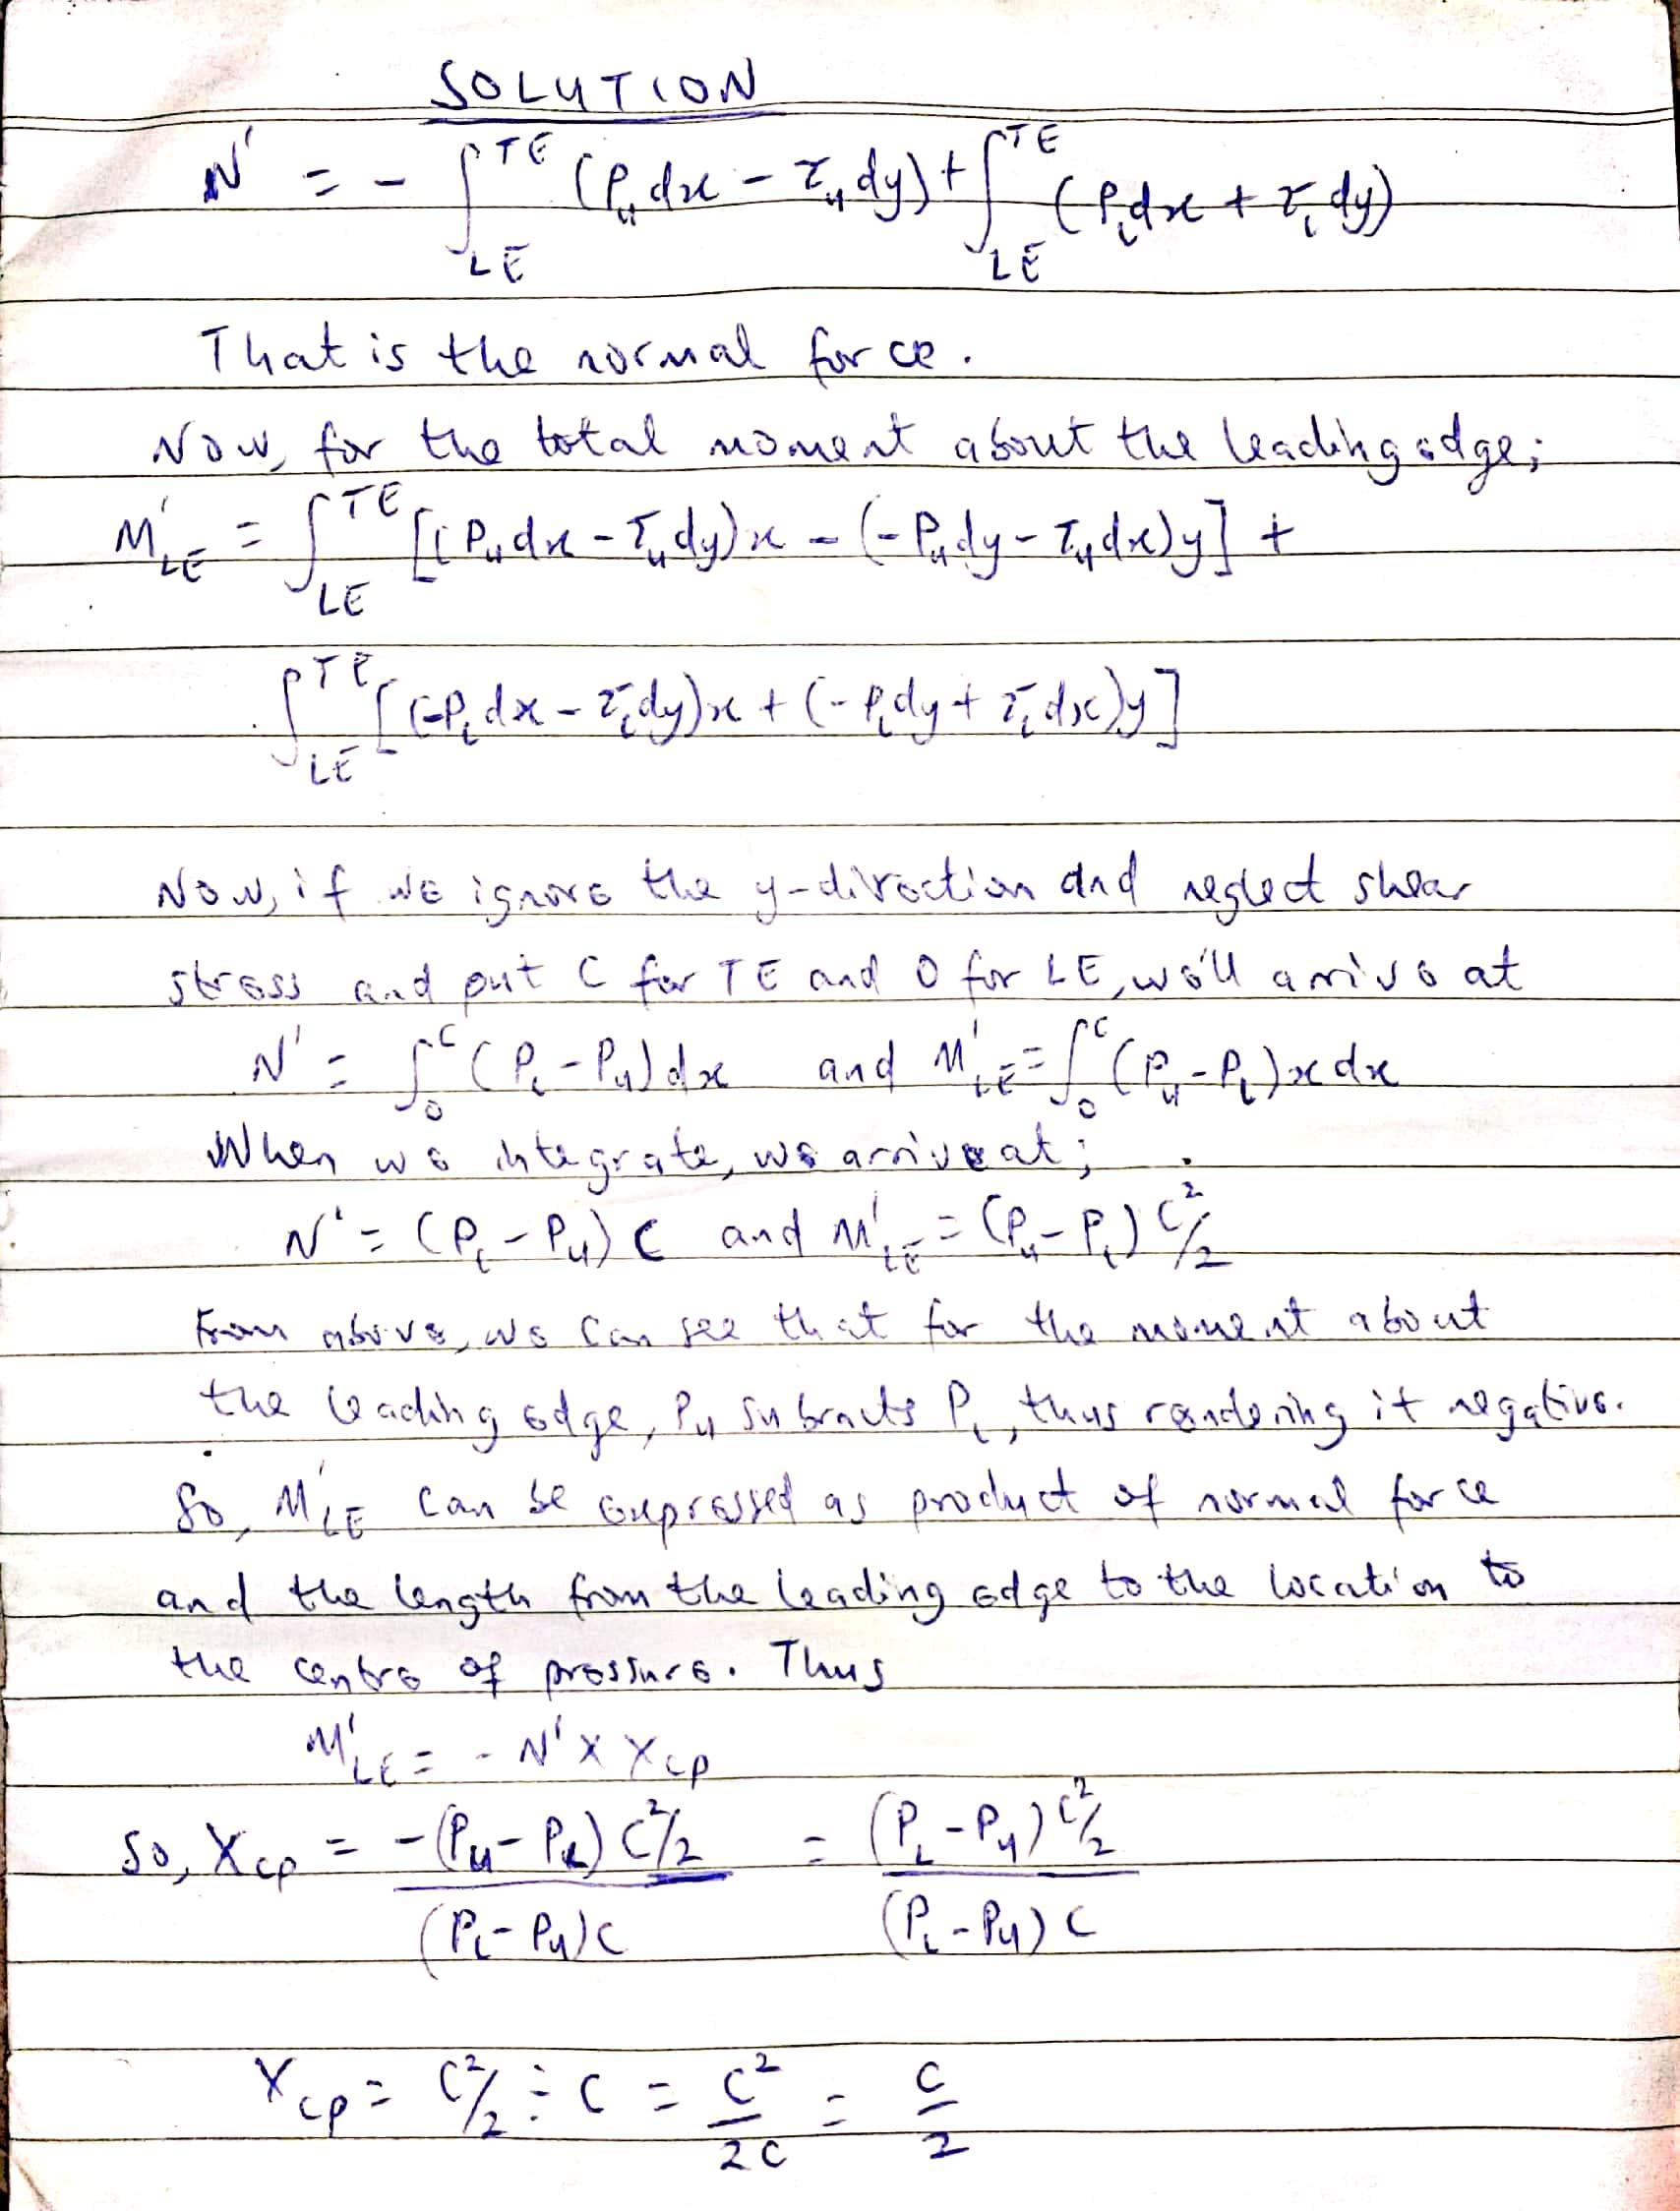 SOLUTION
N' = - ∫_LE^TE (P_u dx - τ_u dy) + ∫_LE^TE (P_l dx + τ_l dy)
That is the normal force.
Now, for the total moment about the leading edge;
M'_LE = ∫_LE^TE [(P_u dx - τ_u dy)x - (-P_u dy - τ_u dx)y] +
∫_LE^TE [(-P_l dx - τ_l dy)x + (-P_l dy + τ_l dx)y]
Now, if we ignore the y-direction and neglect shear
stress and put C for TE and 0 for LE, we'll arrive at
N' = ∫_0^C (P_l - P_u) dx and M'_LE = ∫_0^C (P_u - P_l) x dx
When we integrate, we arrive at;
N' = (P_l - P_u) C and M'_LE = (P_u - P_l) C²/2
From above, we can see that for the moment about
the leading edge, P_u subracts P_l, thus rendering it negative.
So, M'_LE can be expressed as product of normal force
and the length from the leading edge to the location to
the centre of pressure. Thus
M'_LE = - N' × X_cp
So, X_cp = -(P_u - P_l) C²/2 / (P_l - P_u) C = (P_l - P_u) C²/2 / (P_l - P_u) C
X_cp = C²/2 ÷ C = C²/2C = C/2